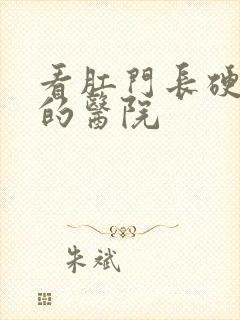 看肛門長硬
的醫院
朱斌